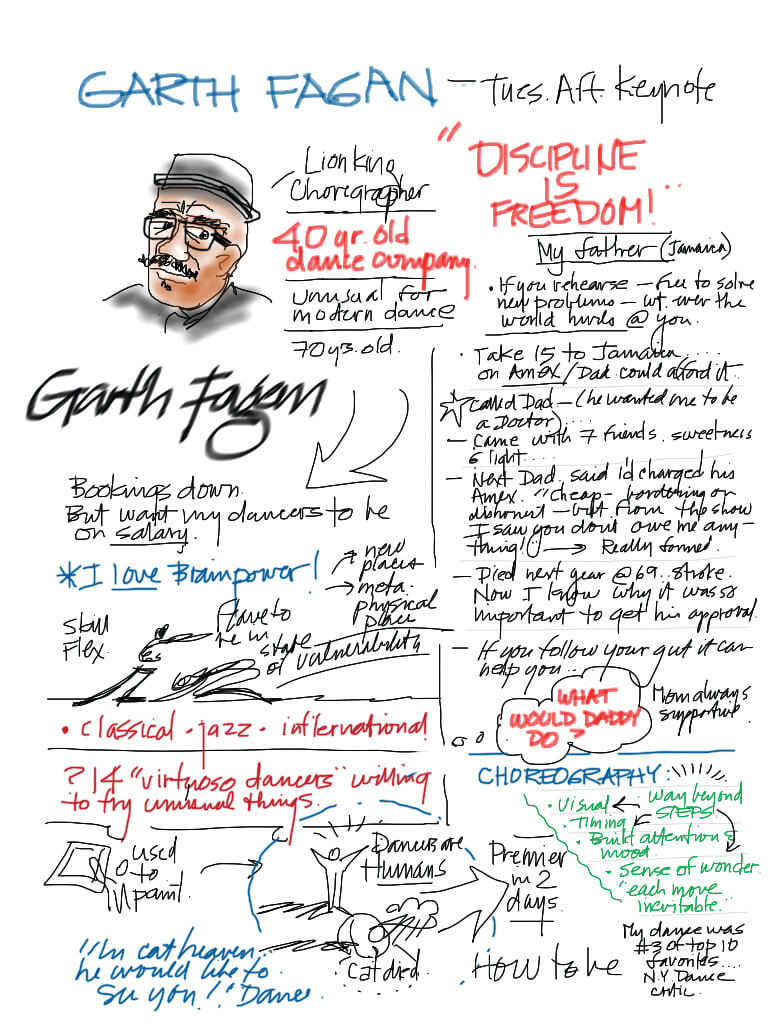 GARTH FAGAN — Tues. Aft. Keynote
Lion King
Choregrapher
40 yr. old
dance company.
unusual for
modern dance
70 yrs. old.
Garth Fagan
Bookings down.
But want my dancers to be
on salary.
*I love Brainpower!
→ new
places
→ meta-
physical
place
Skill
Flex.
Have to
be in
state
of vulnerability
• classical - jazz - international
? 14 "virtuoso dancers" willing
to try unusual things.
used
to
paint
Dancers are
Humans
Cat died
Premier
in 2
days.
"In cat heaven..
he would like to
see you!"
How to be
"DISCIPLINE
IS
FREEDOM!"
My father (Jamaica)
• If you rehearse — free to solve
new problems — wt. ever the
world hurls @ you.
• Take 15 to Jamaica....
on AMEX/Dad could afford it.
Called Dad — (he wanted me to be
a Doctor)
— Came with 7 friends. sweetness
& light....
— Next Dad said I'd charged his
Amex. "Cheap - bordering on
dishonest — but from the show
I saw you don't owe me any-
thing!" → Really formed.
— Died next year @ 69.. stroke.
Now I know why it was so
important to get his approval.
— If you follow your gut it can
help you..
WHAT
WOULD DADDY
DO?
Mom always
supportive.
CHOREOGRAPHY:
• Visual ← way beyond
STEPS
• Timing
• Built attention &
mood.
• Sense of wonder.
"each move
inevitable."
My dance was
#3 of top 10
favorites....
N.Y. Dance
critic.